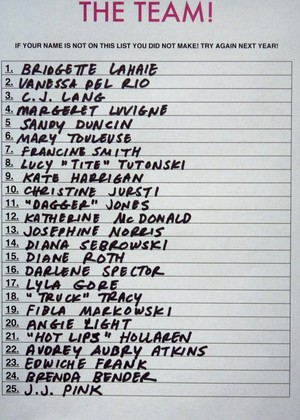 THE TEAM!
IF YOUR NAME IS NOT ON THIS LIST YOU DID NOT MAKE! TRY AGAIN NEXT YEAR!
1. BRIDGETTE LAHAIE
2. VANESSA DEL RIO
3. C.J. LANG
4. MARGERET LUVIGNE
5 SANDY DUNCIN
6. MARY TOULEUSE
7. FRANCINE SMITH
8. LUCY "TITE" TUTONSKI
9. KATE HARRIGAN
10. CHRISTINE JURSTI
11. "DAGGER" JONES
12. KATHERINE McDONALD
13. JOSEPHINE NORRIS
14. DIANA SEBROWSKI
15. DIANE ROTH
16. DARLENE SPECTOR
17. LYLA GORE
18. "TRUCK" TRACY
19. FIBLA MARKOWSKI
20. ANGIE LIGHT
21. "HOT LIPS" HOLLAREN
22. AUDREY AUBRY ATKINS
23. EDWICHE FRANK
24. BRENDA BENDER
25. J.J. PINK